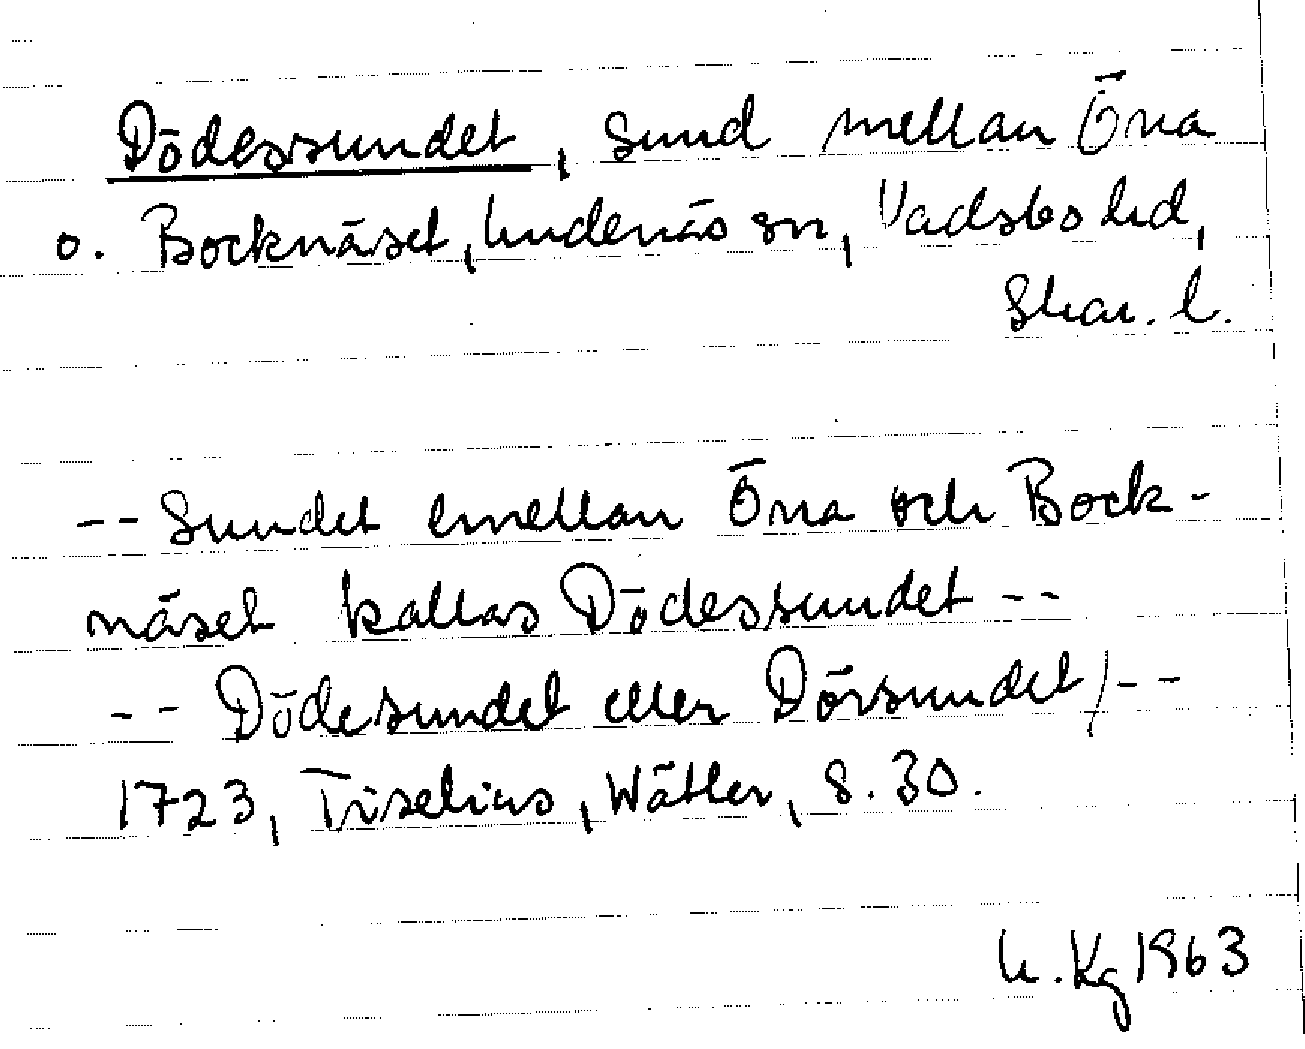 Dödessundet, sund mellan Öna
o. Bocknäset, Undenäs sn, Vadsbo hd,
Skar. l.
-- Sundet emellan Öna och Bock-
näset kallas Dödessundet --
-- Dödesundet eller Dörsundet/--
1723, Tiselius, Wätter, s. 30.
U. Kg 1963